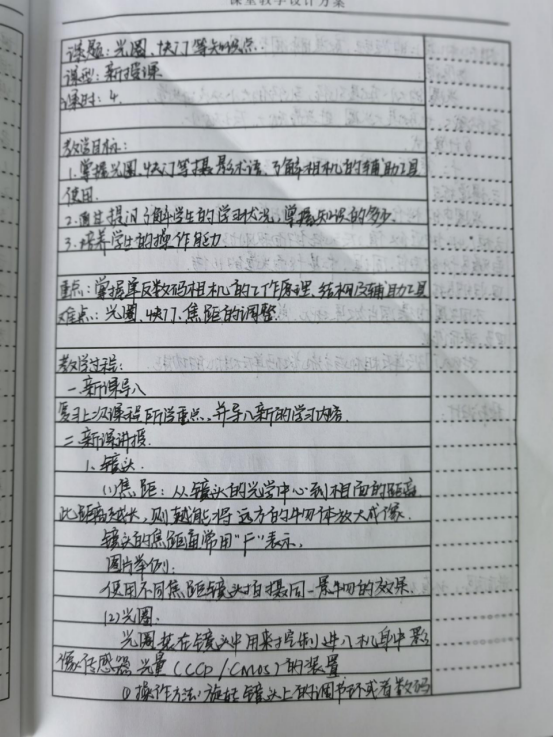 课堂教学设计方案
课题:光圈、快门等知识点.
课型:新授课
课时:4.
教学目标:
1.掌握光圈、快门等摄影术语,了解相机的辅助工具
使用.
2.通过提问了解学生的学习状况,掌握知识的多少.
3.培养学生的操作能力
重点:掌握单反数码相机的工作原理、结构及辅助工具
难点:光圈、快门、焦距的调整.
教学过程:
一.新课导入
复习上次课程所学重点,并导入新的学习内容.
二.新课讲授.
1.镜头.
(1)焦距:从镜头的光学中心到相面的距离.
此距离越长,则越能将远方的物体放大成像.
镜头的焦距通常用"F"表示.
图片举例:
使用不同焦距镜头拍摄同一景物的效果.
(2)光圈.
光圈是在镜头中用来控制进入机身中影
像传感器光量(CCD/CMOS)的装置
①操作方法:旋转镜头上的调节环或者数码